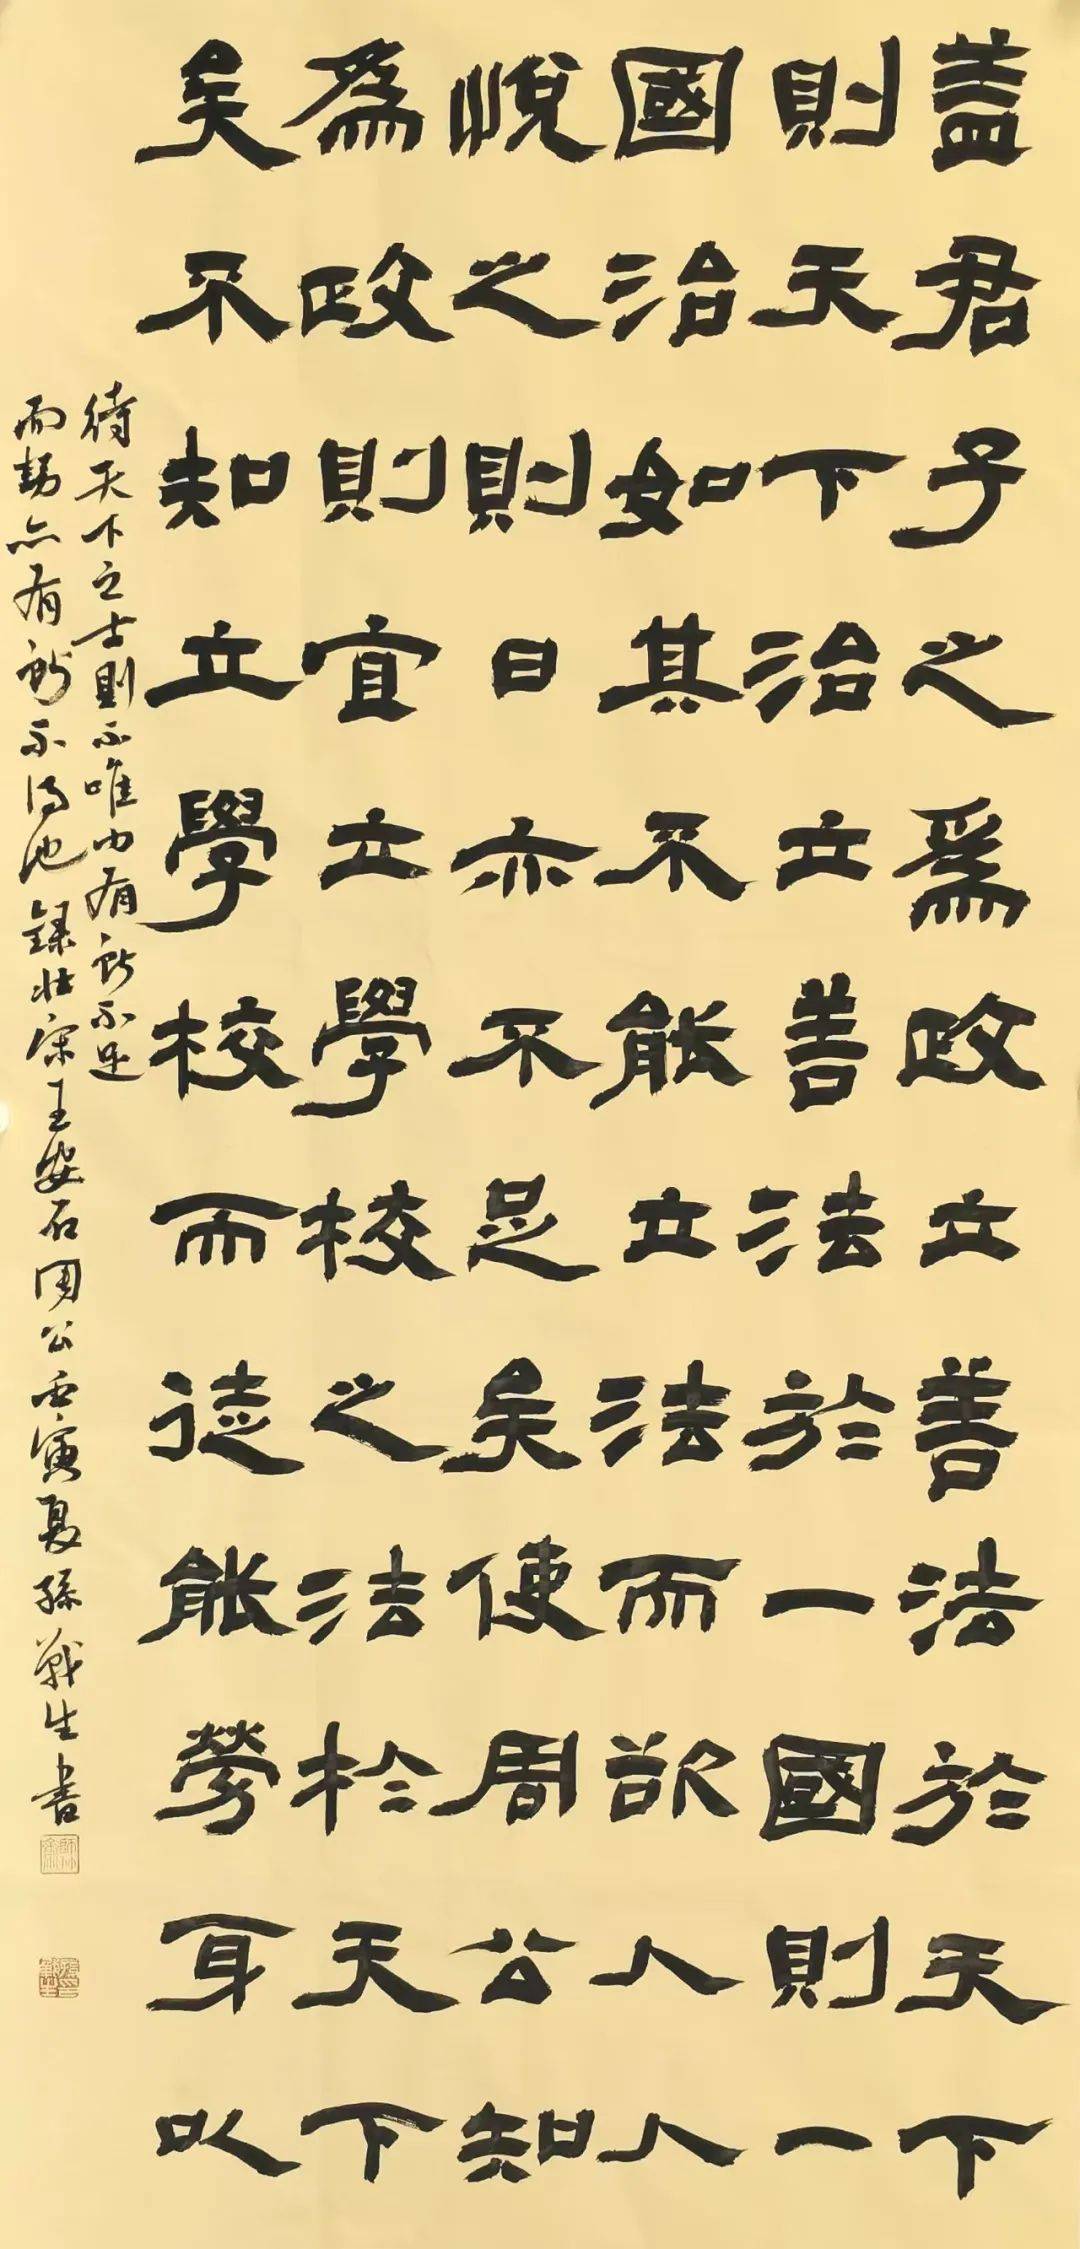 盖君子之為政立善法於天下
則天下治立善法於一國則一
國治如其不能立法而欲人人
悅之則日亦不足矣使周公知
為政則宜立學校之法於天下
矣不知立學校而徒能勞身以
待天下之士則不唯力有所不足
而勢亦有所不得也錄北宋王安石周公壬寅夏孫戰生書